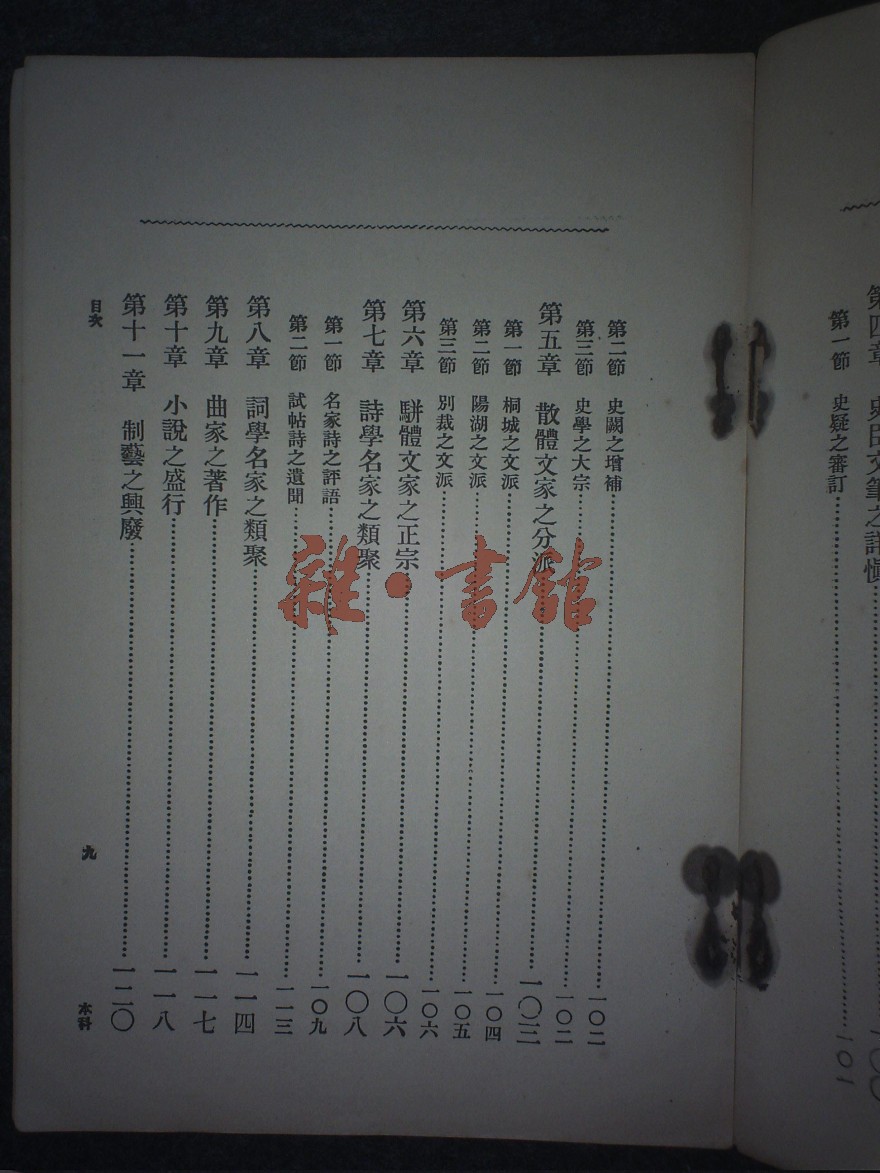 第四章 史
第一節 史疑之審訂……101
第二節 史闕之增補……一〇二
第三節 史學之大宗……一〇二
第五章 散體文家之分派……一〇三
第一節 桐城之文派……一〇四
第二節 陽湖之文派……一〇五
第三節 別裁之文派……一〇六
第六章 駢體文家之正宗……一〇六
第七章 詩學名家之類聚……一〇八
第一節 名家詩之評語……一〇九
第二節 試帖詩之遺聞……一一三
第八章 詞學名家之類聚……一一四
第九章 曲家之著作……一一七
第十章 小說之盛行……一一八
第十一章 制藝之興廢……一二〇
目次
九
本科
雜·書館